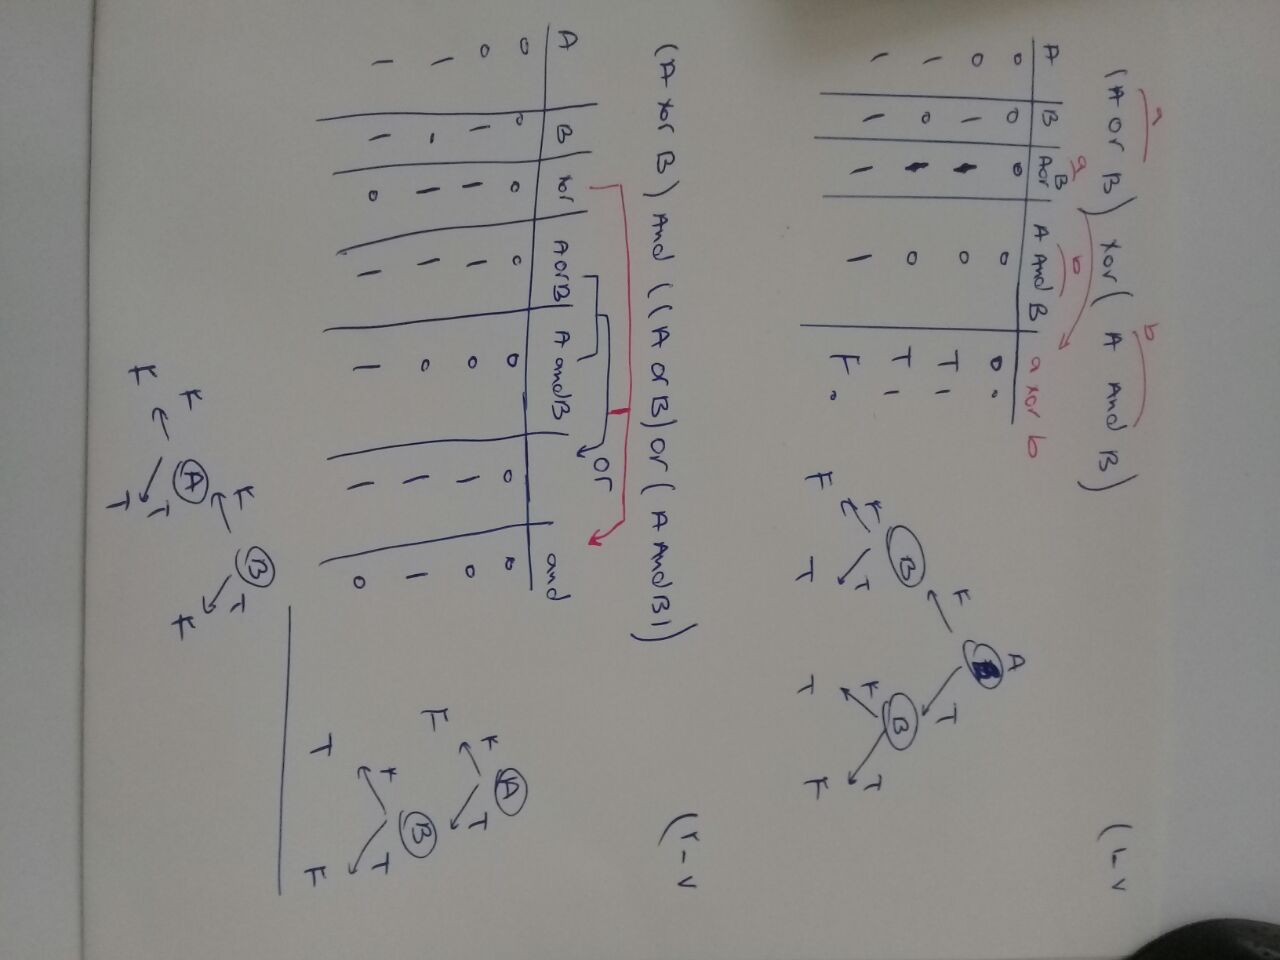 a b
(A or B) xor (A And B) ۷-۱)
a b
A B A or B A And B a xor b
0 0 0 0 0 0
0 1 1 0 T 1
1 0 1 0 T 1
1 1 1 1 F 0
A
F T
B B
F T F T
F T T F
(A xor B) And ((A or B) or (A And B)) ۷-۲)
or
A B xor A or B A and B and
0 0 0 0 0 0 0
0 1 1 1 0 1 0
1 0 1 1 0 1 1
1 1 0 1 1 1 0
A
F T
F B
F T
T F
B
F T
A F
F T
F T